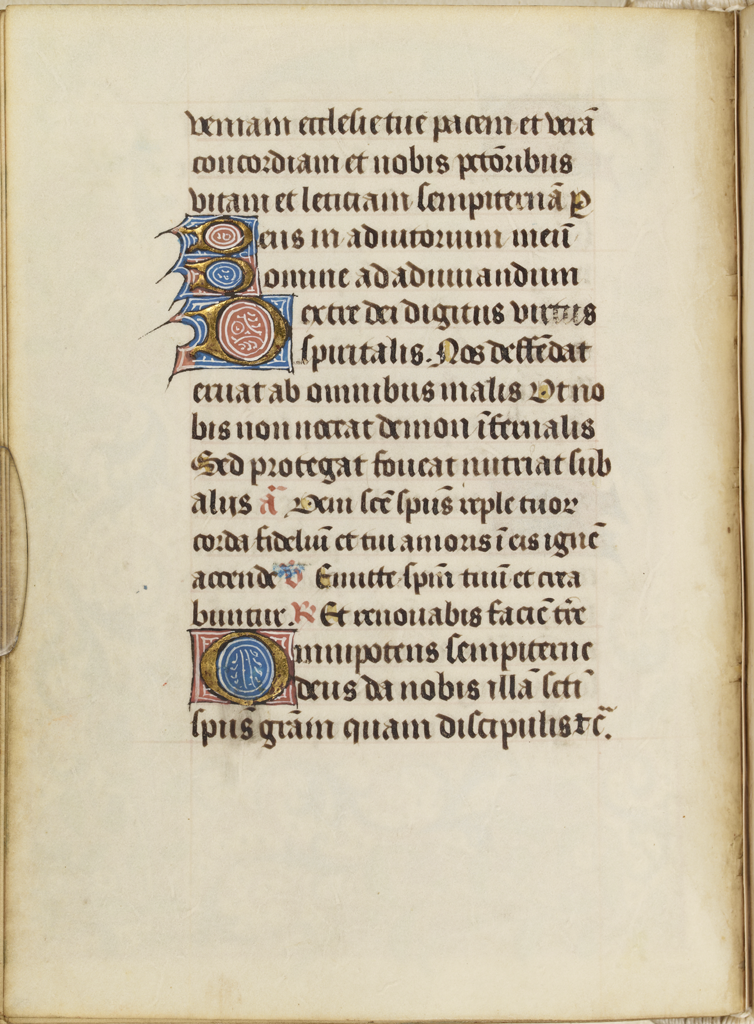 veniam ecclesie tue pacem et verā
concordiam et nobis pctōribus
vitam et leticiam sempiternā P
Deus in adiutorium meū
Domine ad adiuuandum
Dextre dei digitus virtus
spiritalis. Nos deffēdat
eruat ab omnibus malis Vt no
bis non noceat demon īfernalis
Sed protegat foueat nutriat sub
alis a᷃ Veni scē spūs reple tuor
corda fideliū et tui amoris ī eis ignē
accende V̄ Emitte spm̄ tuū et crea
buntur. R̄ Et renouabis faciē tr̄e
Omnipotens sempiterne
deus da nobis illā scti
spūs grām quam discipulis ⁊c̄.